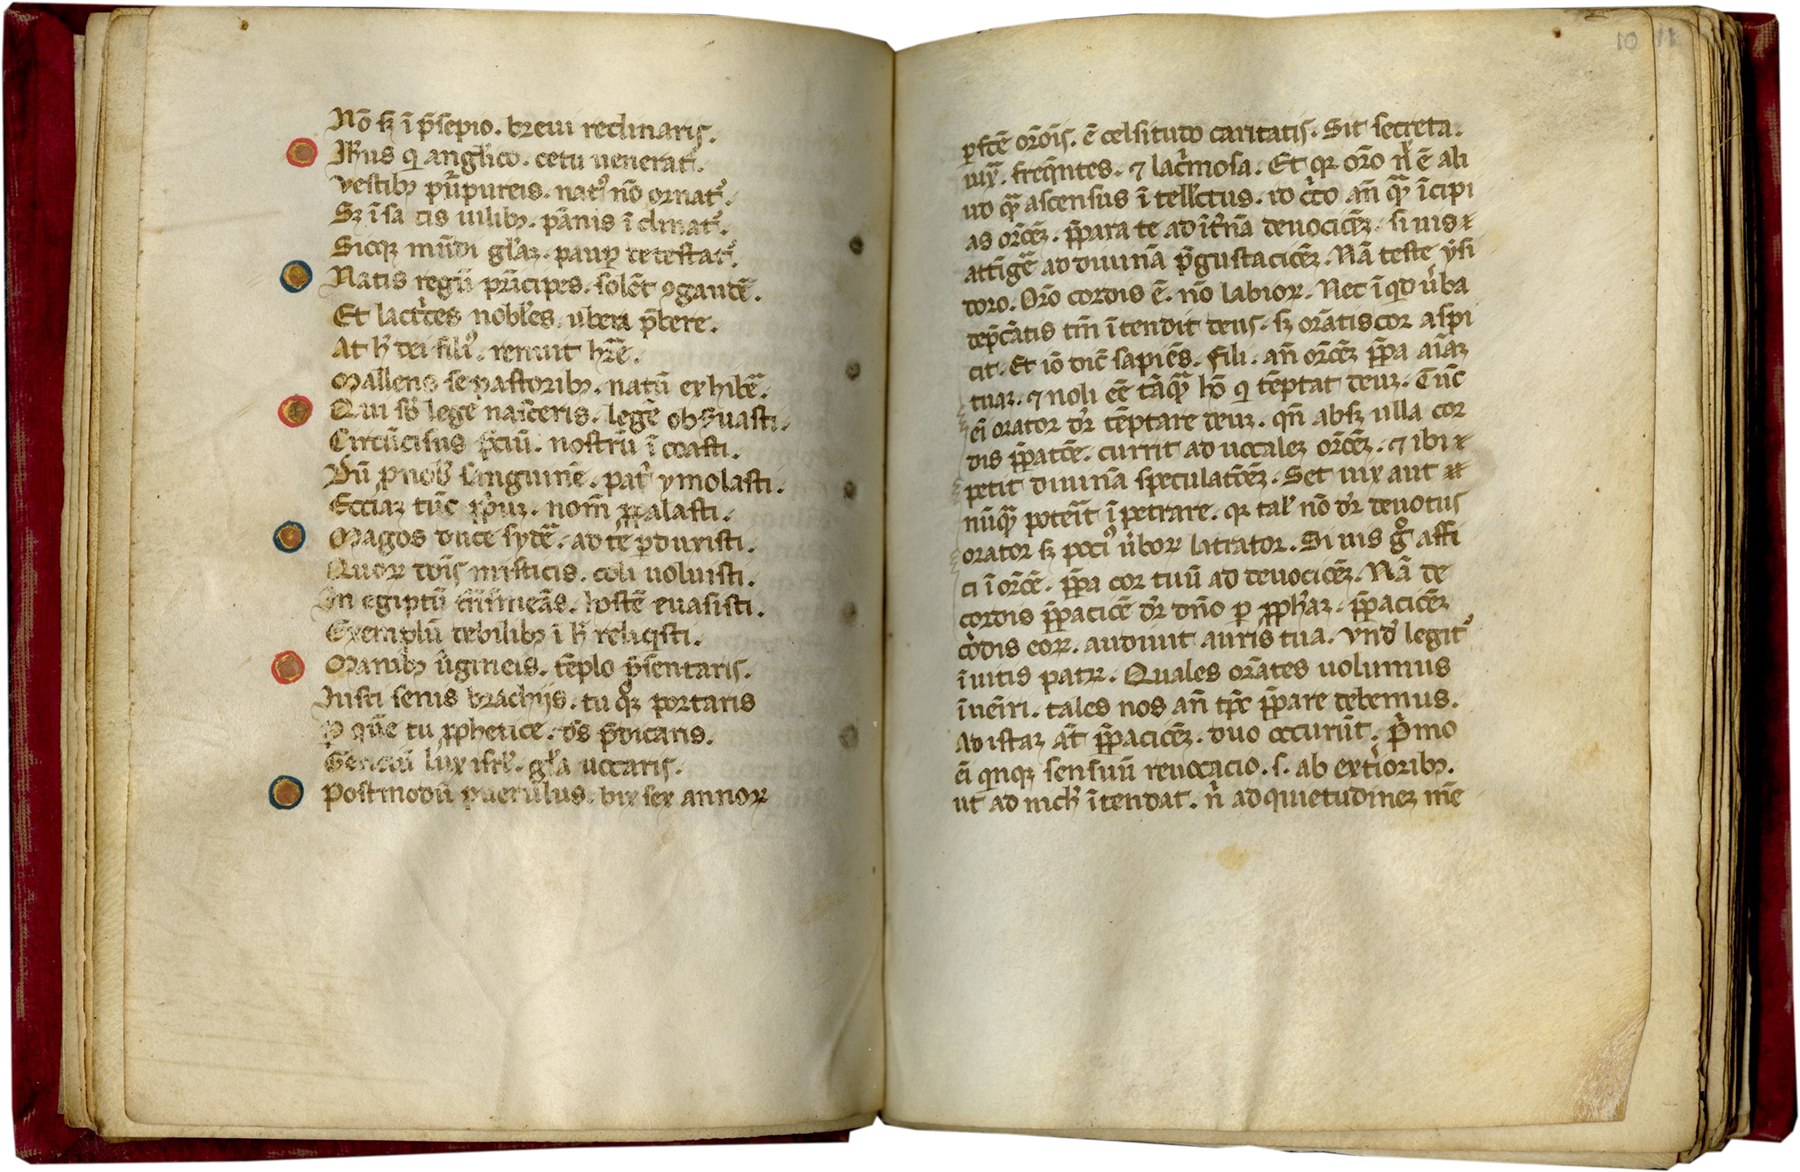 Nō sꝫ ī p̄sepio. breui reclinaris.
Ihꝰus q̇ anglico. cetu uenerat᷑.
Vestibꝫ pur̄pureis. natꝰ nō ornatꝰ.
Sꝫ ī sa cis uilibꝫ. pānis ī clinatꝰ.
Sicqꝫ mūdi gl̄aꝫ. paup̲ detestat᷑.
Natis regū prīcipes. solēt ꝯgaudē.
Et lact̄ces nobl̄es. ubera p̄bere.
At h̄ dei filiꝰ. renuit hr̄e.
Mallens se pastoribꝫ. natū exhibē.
Qui sb̄ legē nasc̄eris. legē obs̄uasti.
Circūcisus p̄ciū. nostrū ī coasti.
Dū ꝓ nob̄ sanguinē. pat̄ ymolasti.
Ecciaꝫ tūc p̄puꝫ. nom̄ ꝓpalasti.
Magos duce syđe. ad te ꝑduxisti.
Quoꝝ dōis misticis. coli uoluisti.
In egiptū timeās. hostē euasisti.
Exemplū debilibꝫ ī h̄ reliq̇sti.
Manibꝫ ūgineis. tēplo p̄sentaris.
Iusti senis brachijs. tu qͦqꝫ portaris
ꝑ quē tu ꝓphetice. d̄s p̄dicaris.
Genciū lux isrl̄. gl̄a uocaris.
Postmodū puerulus. bix sex annoꝝ
ꝑfcē or̄ōis. ē celsitudo caritatis. Sit secreta.
iux̄. freq̄ntes. ⁊ lac̄mosa. Et qꝛ or̄o n̄l ē ali
ud qᷓ ascensus ī tell̄ctus. īo c̄co ān̄ qᷓ īcipi
as or̄cēꝫ. p̄para te ad īt̄nā deuocicēꝫ. si uis
attīgē ad diuinā p̄gustacicēꝫ. Nā teste ysi
doro. Or̄o cordis ē. nō labioꝝ. Nec ī qd̄ ūba
dep̄cātis tm̄ ī tendit deus. sꝫ orātis cor aspi
cit. Et iō dic̄ sapiēs. Fili. an̄ or̄cēꝫ p̄pa aīaꝫ
tuaꝫ. ⁊ noli eē tāqᷓ hō q̇ tēptat deuꝫ. Tūc
eī orator dr̄ tēptare deuꝫ. qn̄ absꝫ ulla cor
dis p̄patcē. currit ad uocaleꝫ or̄cēꝫ. ⁊ ibi
petit diuinā speculatcēꝫ. Set uix aut
nūqᷓ poteit ī petrare. qꝛ tal̄ nō dr̄ deuotus
orator sꝫ pociꝰ ūboꝝ latrator. Si uis gͦ affi
ci ī or̄cē. p̄pa cor tuū ad deuocicēꝫ. Nā de
cordis p̄pacicē dr̄ dn̄o ꝑ ꝓph̄aꝫ. p̄pacicēꝫ
cōdis eoꝝ. audiuit auris tua. vnd̄ legit᷑
ī uitis patꝝ. Quales orātes uolumus
īueīri. tales nos an̄ tp̄c p̄pare debemus.
Ad istaꝫ āt p̄pacicēꝫ. duo occurūt. P̄mo
eī qinqꝫ sensuū reuocacio. s. ab ext̄ioribꝫ.
ut ad nich̄ ī tendat. n̄ ad quietudineꝫ mē